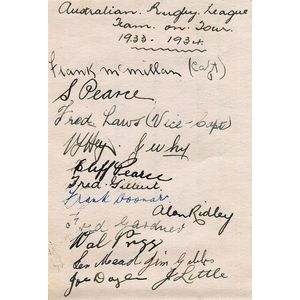 Australian Rugby League
Team on Tour.
1933. 1934.
Frank McMillan (Capt)
S Pearce
Fred Laws (Vice-Capt)
V Hey. J Why
Cliff Pearce
Fred. Gilbert.
Frank Doonar
Alan Ridley
F Gardner
Wal Prigg
Les Mead Jim Gibbs
Joe Doyle J Little